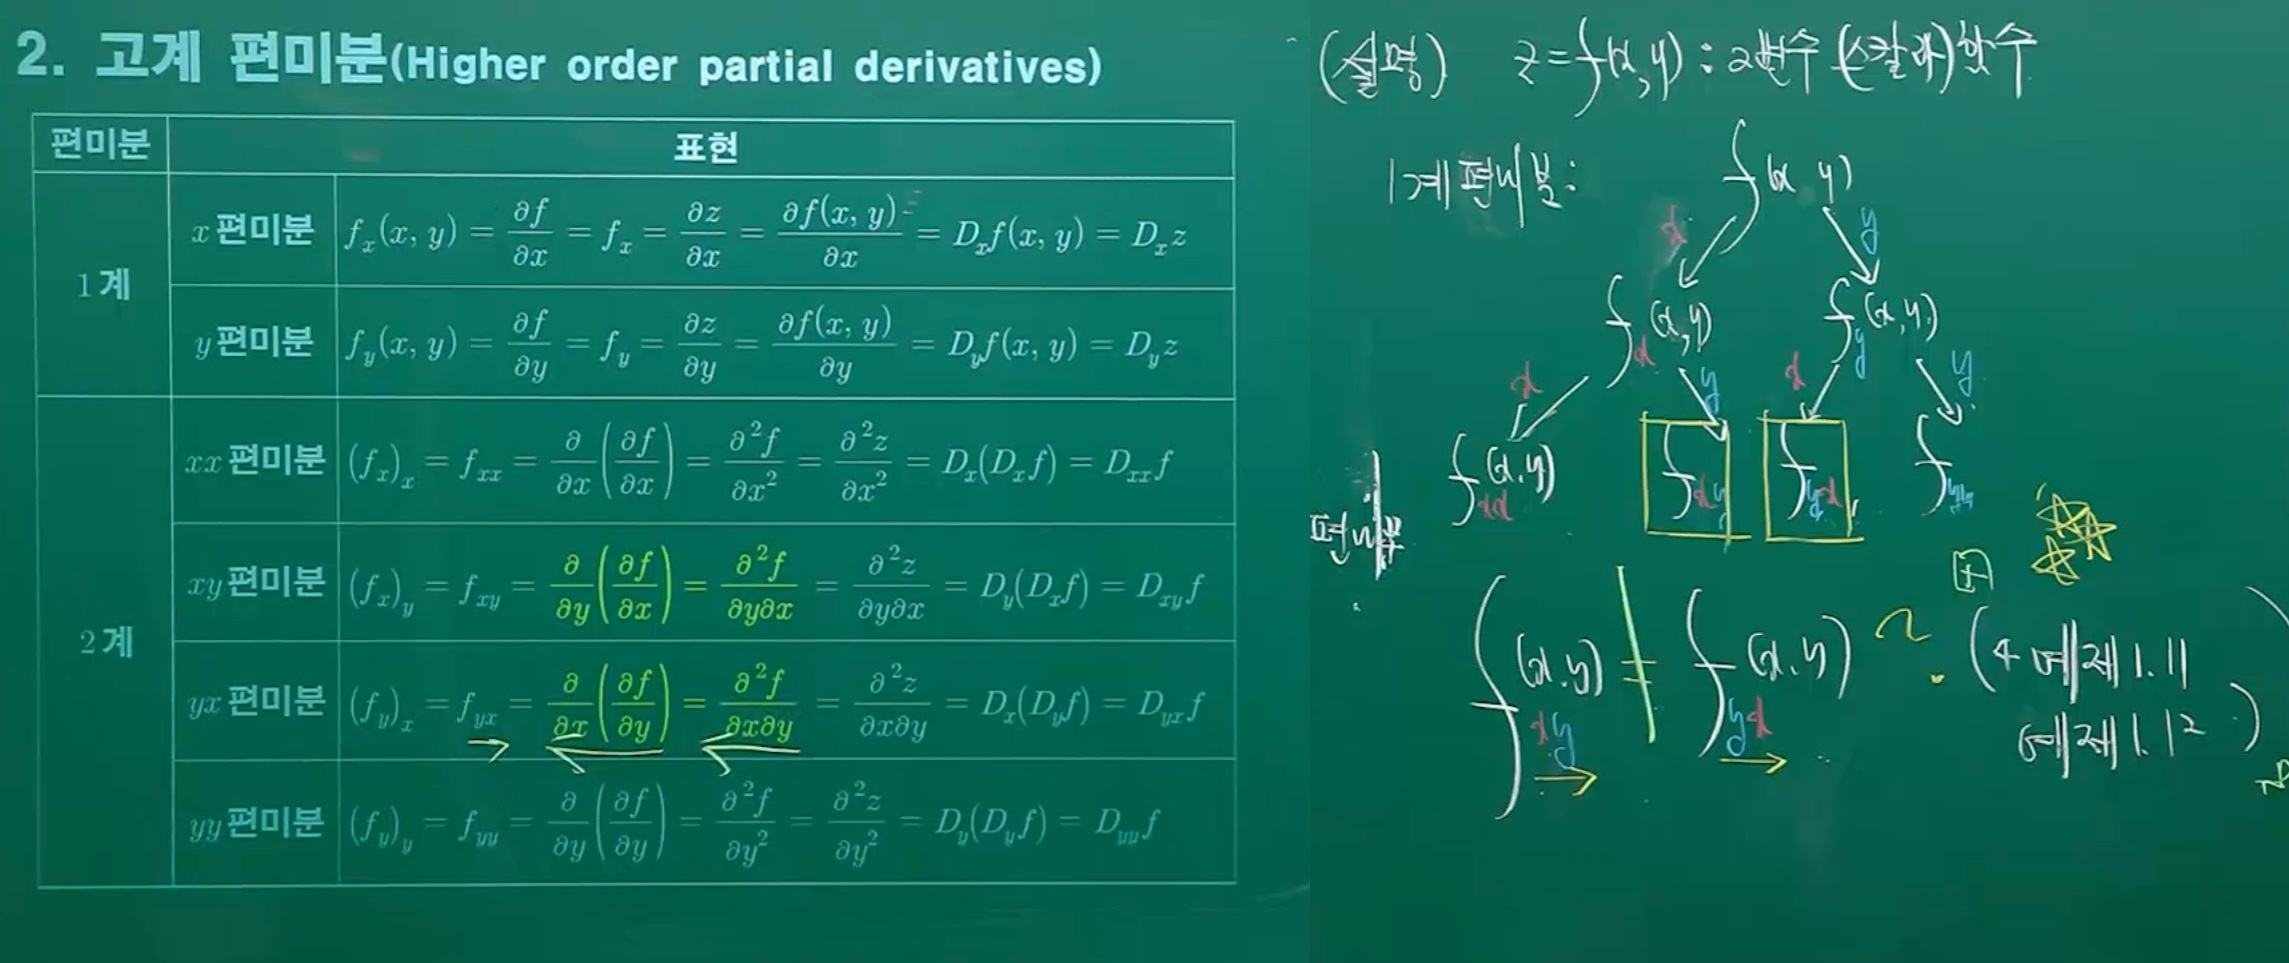 2. 고계 편미분(Higher order partial derivatives)
편미분 표현
1계
x 편미분 f_x(x, y) = ∂f/∂x = f_x = ∂z/∂x = ∂f(x, y)/∂x = D_x f(x, y) = D_x z
y 편미분 f_y(x, y) = ∂f/∂y = f_y = ∂z/∂y = ∂f(x, y)/∂y = D_y f(x, y) = D_y z
2계
xx 편미분 (f_x)_x = f_xx = ∂/∂x (∂f/∂x) = ∂²f/∂x² = ∂²z/∂x² = D_x(D_x f) = D_xx f
xy 편미분 (f_x)_y = f_xy = ∂/∂y (∂f/∂x) = ∂²f/∂y∂x = ∂²z/∂y∂x = D_y(D_x f) = D_xy f
yx 편미분 (f_y)_x = f_yx = ∂/∂x (∂f/∂y) = ∂²f/∂x∂y = ∂²z/∂x∂y = D_x(D_y f) = D_yx f
yy 편미분 (f_y)_y = f_yy = ∂/∂y (∂f/∂y) = ∂²f/∂y² = ∂²z/∂y² = D_y(D_y f) = D_yy f
(설명) z = f(x, y) : 2변수 (스칼라)함수
1계 편미분 : f(x, y)
x y
f_x(x, y) f_y(x, y)
x y x y
f_xx(x, y) f_xy f_yx f_yy
편미분
f_xy(x, y) ≠ f_yx(x, y) ? 예제 1.11
예제 1.12